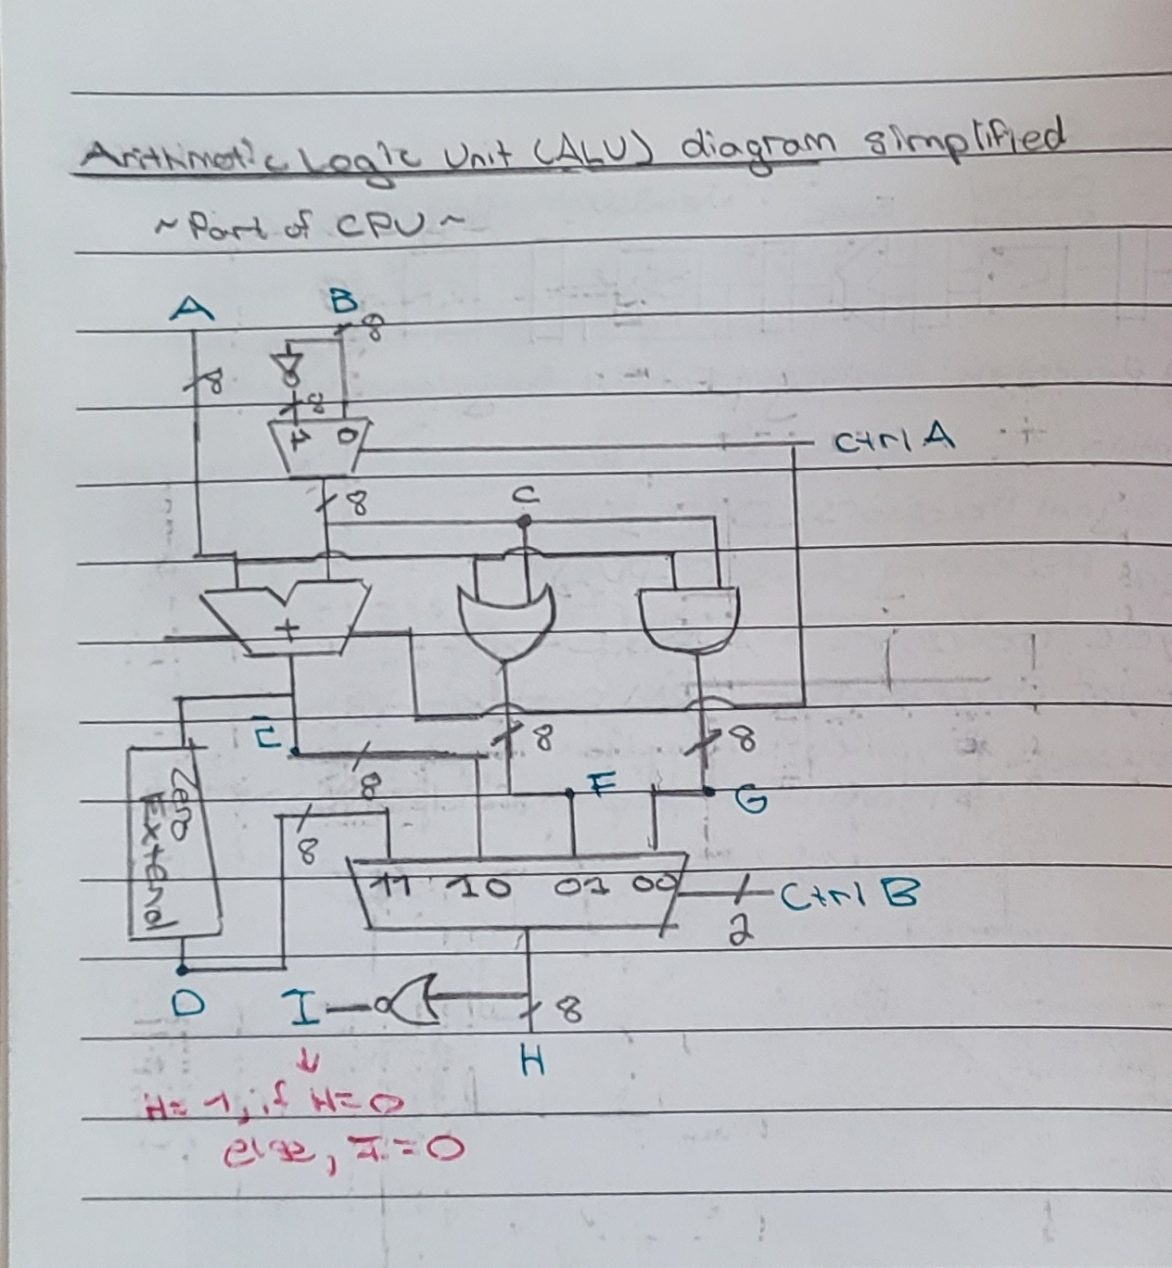 Arithmetic Logic Unit (ALU) diagram simplified
~ Part of CPU ~
A
B
8
8
8
1 0
Ctrl A
8
C
+
E
8
8
8
F
G
Zero
Extend
8
11 10 01 00
Ctrl B
2
D
I
8
H
H= 1, if H=0
else, I=0